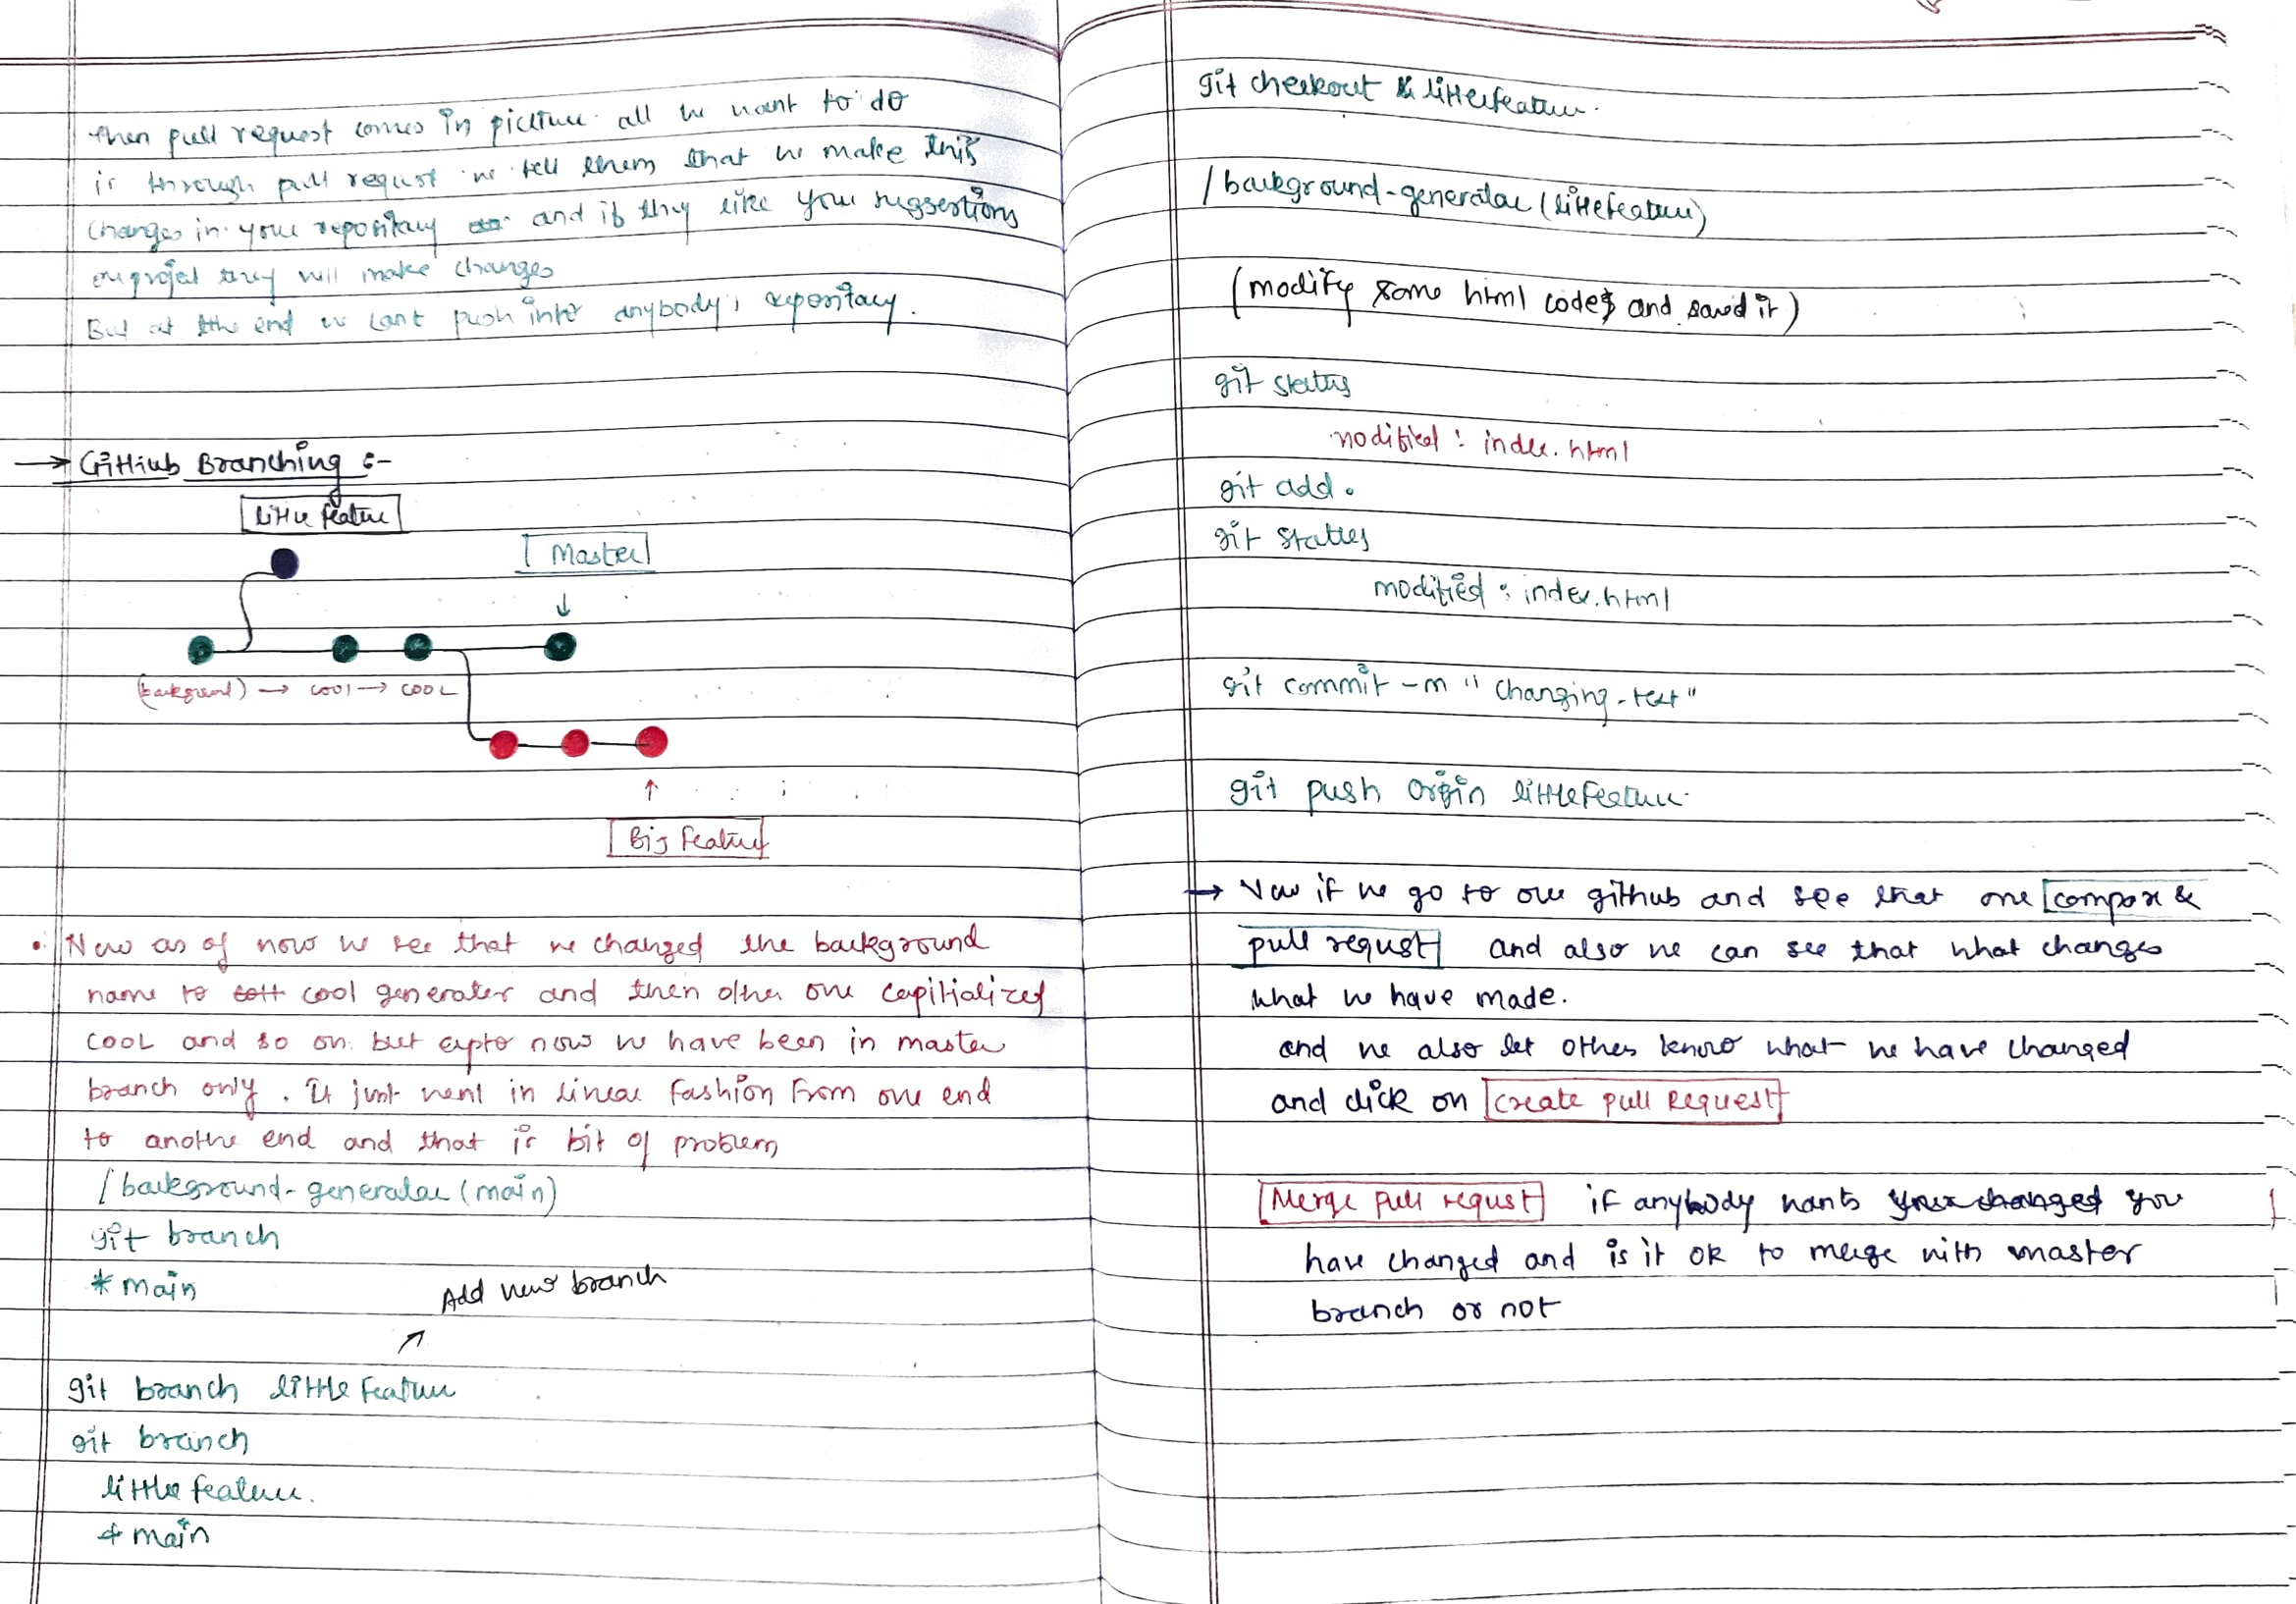 then pull request comes in picture. all we want to do
is through pull request we tell them that we make this
changes in your repositary and if they like your suggestions
our projet they will make changes
But at the end we cant push into anybody's repositary.
→ GitHub Branching :-
little featur
Master
↓
(background) → cool → COOL
↑
Big featur
• Now as of now we see that we changed the background
name to cool generater and then other one capitialized
COOL and so on. but upto now we have been in master
branch only. It just went in linear fashion from one end
to anothe end and that is bit of problem
/background-generatar (main)
git branch
* main
Add new branch
↗
git branch littlefeature
git branch
littlefeature.
* main
git checkout littlefeature.
/background-generatar (littlefeature)
(modify some html codes and saved it)
git status
modified : index.html
git add .
git status
modified : index.html
git commit -m "changing-text"
git push origin littlefeature.
→ Now if we go to our github and see that one compare &
pull requst and also we can see that what changes
what we have made.
and we also let others know what we have changed
and click on create pull Request
Merge pull requst if anybody wants your changed you
have changed and is it ok to merge with master
branch or not